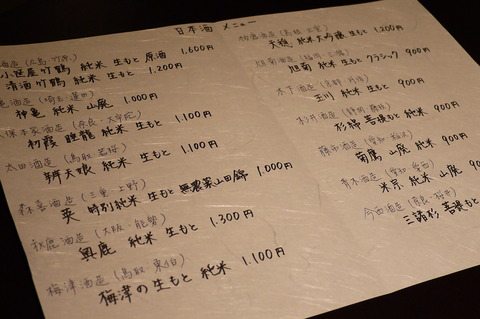 日本酒 メニュー
酒造 (広島・竹原)
小笹屋竹鶴 純米 生もと 原酒 1,600円
清酒竹鶴 純米 生もと 1,200円
酒造 (埼玉・蓮田)
神亀 純米 山廃 1,000円
久保本家酒造 (奈良・大宇陀)
初霞 睡龍 純米 生もと 1,100円
太田酒造 (鳥取 若桜)
辨天娘 純米 生もと 1,100円
森喜酒造 (三重・上野)
英 特別純米 生もと 無農薬山田錦 1,000円
秋鹿酒造 (大阪・能勢)
奥鹿 純米 生もと 1,300円
梅津酒造 (鳥取 東伯)
梅津の生もと 純米 1,100円
天穏 純米大吟醸 生もと 1,200円
旦南 純米 生もと クラシック 900円
木下酒造 (京都・丹後)
玉川 純米 生もと 900円
杉井酒造 (静岡・藤枝)
杉錦 菩提もと 純米 900円
藤市酒造 (愛知・稲沢)
菊鷹 山廃 純米 900円
青木酒造 (愛知・愛西)
米宗 純米 山廃
今西酒造 (奈良・桜井)
三諸杉 菩提もと